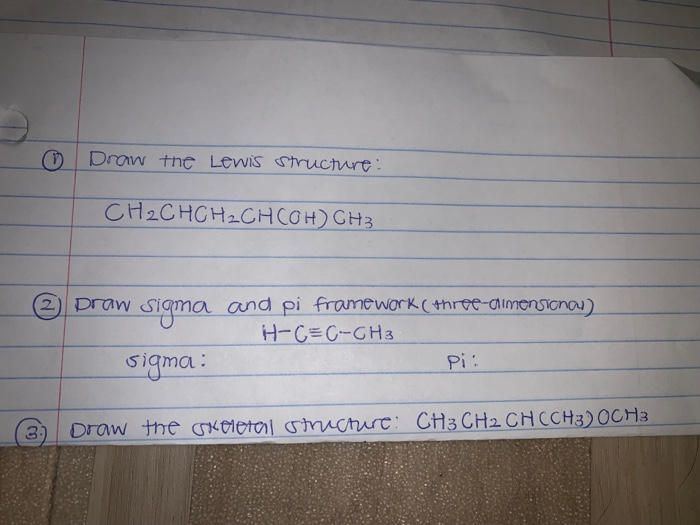 ① Draw the Lewis structure:
CH₂CHCH₂CH(OH)CH₃
② Draw sigma and pi framework (three-dimensional)
H-C≡C-CH₃
sigma: Pi:
③ Draw the skeletal structure: CH₃CH₂CH(CH₃)OCH₃